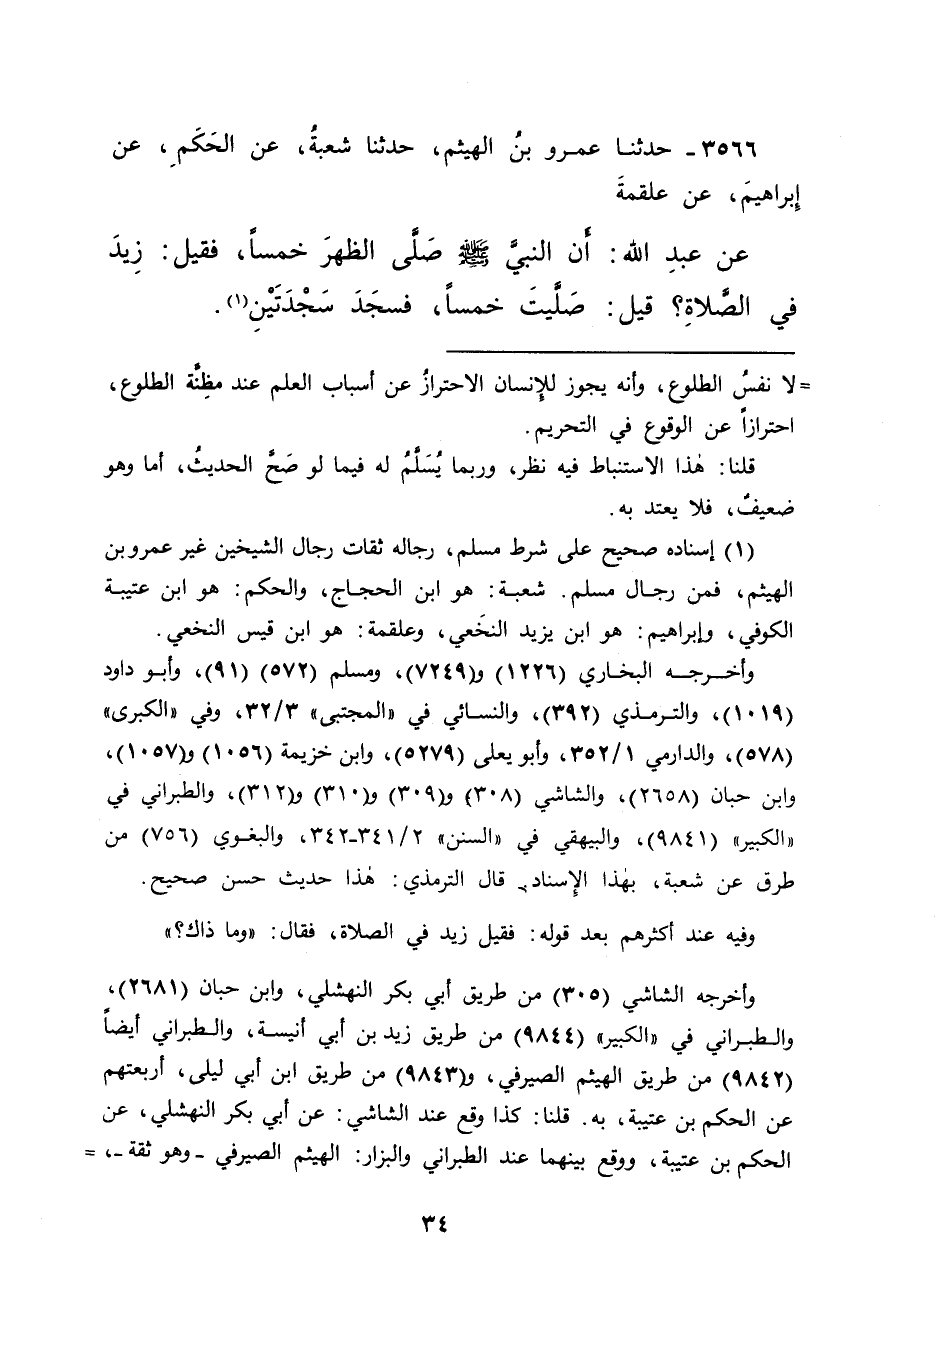 ٣٥٦٦ـ حدثنـا عمـرو بنُ الهيثم، حدثنا شعبةُ، عن الحَكَمِ، عن
إبراهيمَ، عن علقمةَ
عن عبدِ الله: أَن النبيَّ ﷺ صَلَّى الظهرَ خمساً، فقيل: زِيدَ
في الصَّلاةِ؟ قيل: صَلَّيتَ خمساً، فسجَدَ سَجْدَتَيْنِ(١).
=لا نفسُ الطلوع، وأنه يجوز للإنسان الاحترازُ عن أسباب العلم عند مظِنَّة الطلوع،
احترازاً عن الوقوع في التحريم.
قلنا: هٰذا الاستنباط فيه نظر، وربما يُسَلَّمُ له فيما لو صَحَّ الحديثُ، أما وهو
ضعيفٌ، فلا يعتد به.
(١) إسناده صحيح على شرط مسلم، رجاله ثقات رجال الشيخين غير عمرو بن
الهيثم، فمن رجـال مسلم. شعبـة: هو ابن الحجـاج، والحكم: هو ابن عتيبـة
الكوفي، وإبراهيم: هو ابن يزيد النخَعي، وعلقمة: هو ابن قيس النخعي.
وأخـرجـه البخـاري (١٢٢٦) و(٧٢٤٩)، ومسلم (٥٧٢) (٩١)، وأبـو داود
(١٠١٩)، والتـرمـذي (٣٩٢)، والنسـائي في «المجتبى» ٣٢/٣، وفي «الكبرى»
(٥٧٨)، والدارمي ٣٥٢/١، وأبو يعلى (٥٢٧٩)، وابن خزيمة (١٠٥٦) و(١٠٥٧)،
وابن حبان (٢٦٥٨)، والشاشي (٣٠٨) و(٣٠٩) و(٣١٠) و(٣١٢)، والطبراني في
«الكبير» (٩٨٤١)، والبيهقي في «السنن» ٣٤١/٢-٣٤٢، والبغـوي (٧٥٦) من
طرق عن شعبة، بهٰذا الإسناد. قال الترمذي: هٰذا حديث حسن صحيح.
وفيه عند أكثرهم بعد قوله: فقيل زيد في الصلاة، فقال: «وما ذاك؟»
وأخرجه الشاشي (٣٠٥) من طريق أبي بكر النهشلي، وابن حبان (٢٦٨١)،
والـطبـراني في «الكبير» (٩٨٤٤) من طريق زيد بن أبي أنيسة، والـطبراني أيضاً
(٩٨٤٢) من طريق الهيثم الصيرفي، و(٩٨٤٣) من طريق ابن أبي ليلى، أربعتهم
عن الحكم بن عتيبة، به. قلنا: كذا وقع عند الشاشي: عن أبي بكر النهشلي، عن
الحكم بن عتيبة، ووقع بينهما عند الطبراني والبزار: الهيثم الصيرفي ـ وهو ثقة ـ، =
٣٤